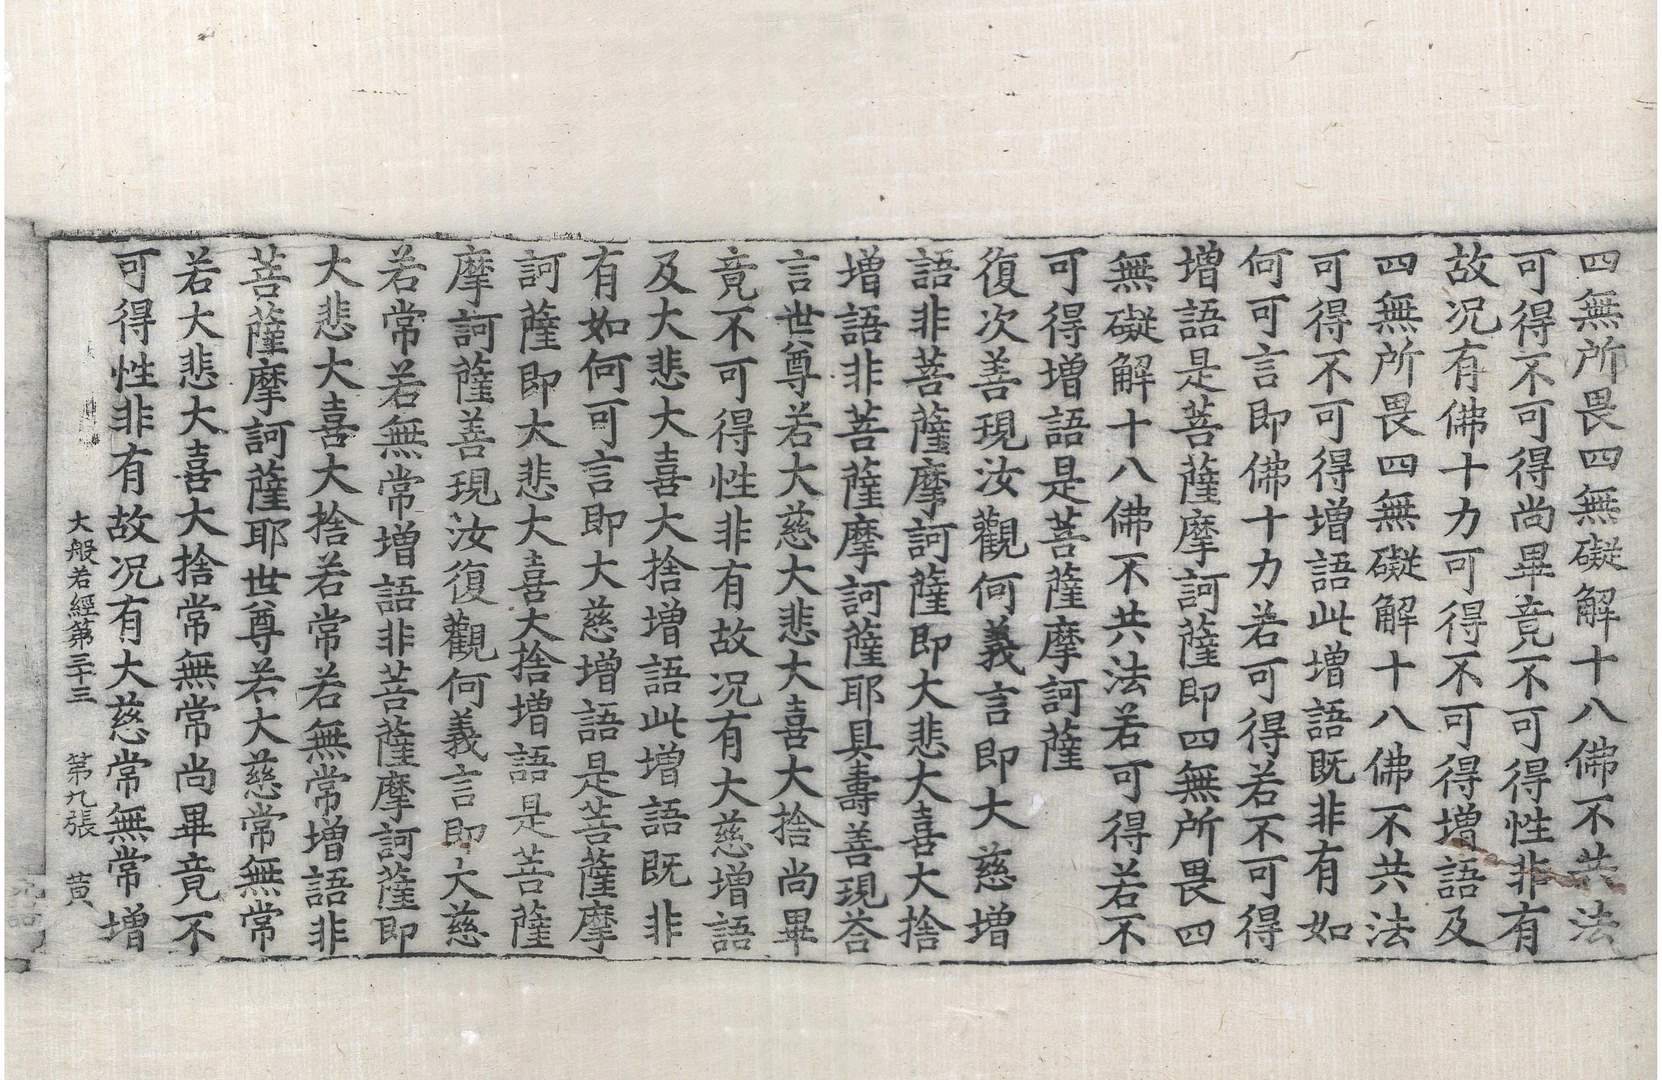 四無所畏四無礙解十八佛不共法
可得不可得尚畢竟不可得性非有
故况有佛十力可得不可得增語及
四無所畏四無礙解十八佛不共法
可得不可得增語此增語既非有如
何可言即佛十力若可得若不可得
增語是菩薩摩訶薩即四無所畏四
無礙解十八佛不共法若可得若不
可得增語是菩薩摩訶薩
復次善現汝觀何義言即大慈增
語非菩薩摩訶薩即大悲大喜大捨
增語非菩薩摩訶薩耶具壽善現荅
言世尊若大慈大悲大喜大捨尚畢
竟不可得性非有故况有大慈增語
及大悲大喜大捨增語此增語既非
有如何可言即大慈增語是菩薩摩
訶薩即大悲大喜大捨增語是菩薩
摩訶薩善現汝復觀何義言即大慈
若常若無常增語非菩薩摩訶薩即
大悲大喜大捨若常若無常增語非
菩薩摩訶薩耶世尊若大慈常無常
若大悲大喜大捨常無常尚畢竟不
可得性非有故况有大慈常無常增
大般若經第三十三 第九張 黄